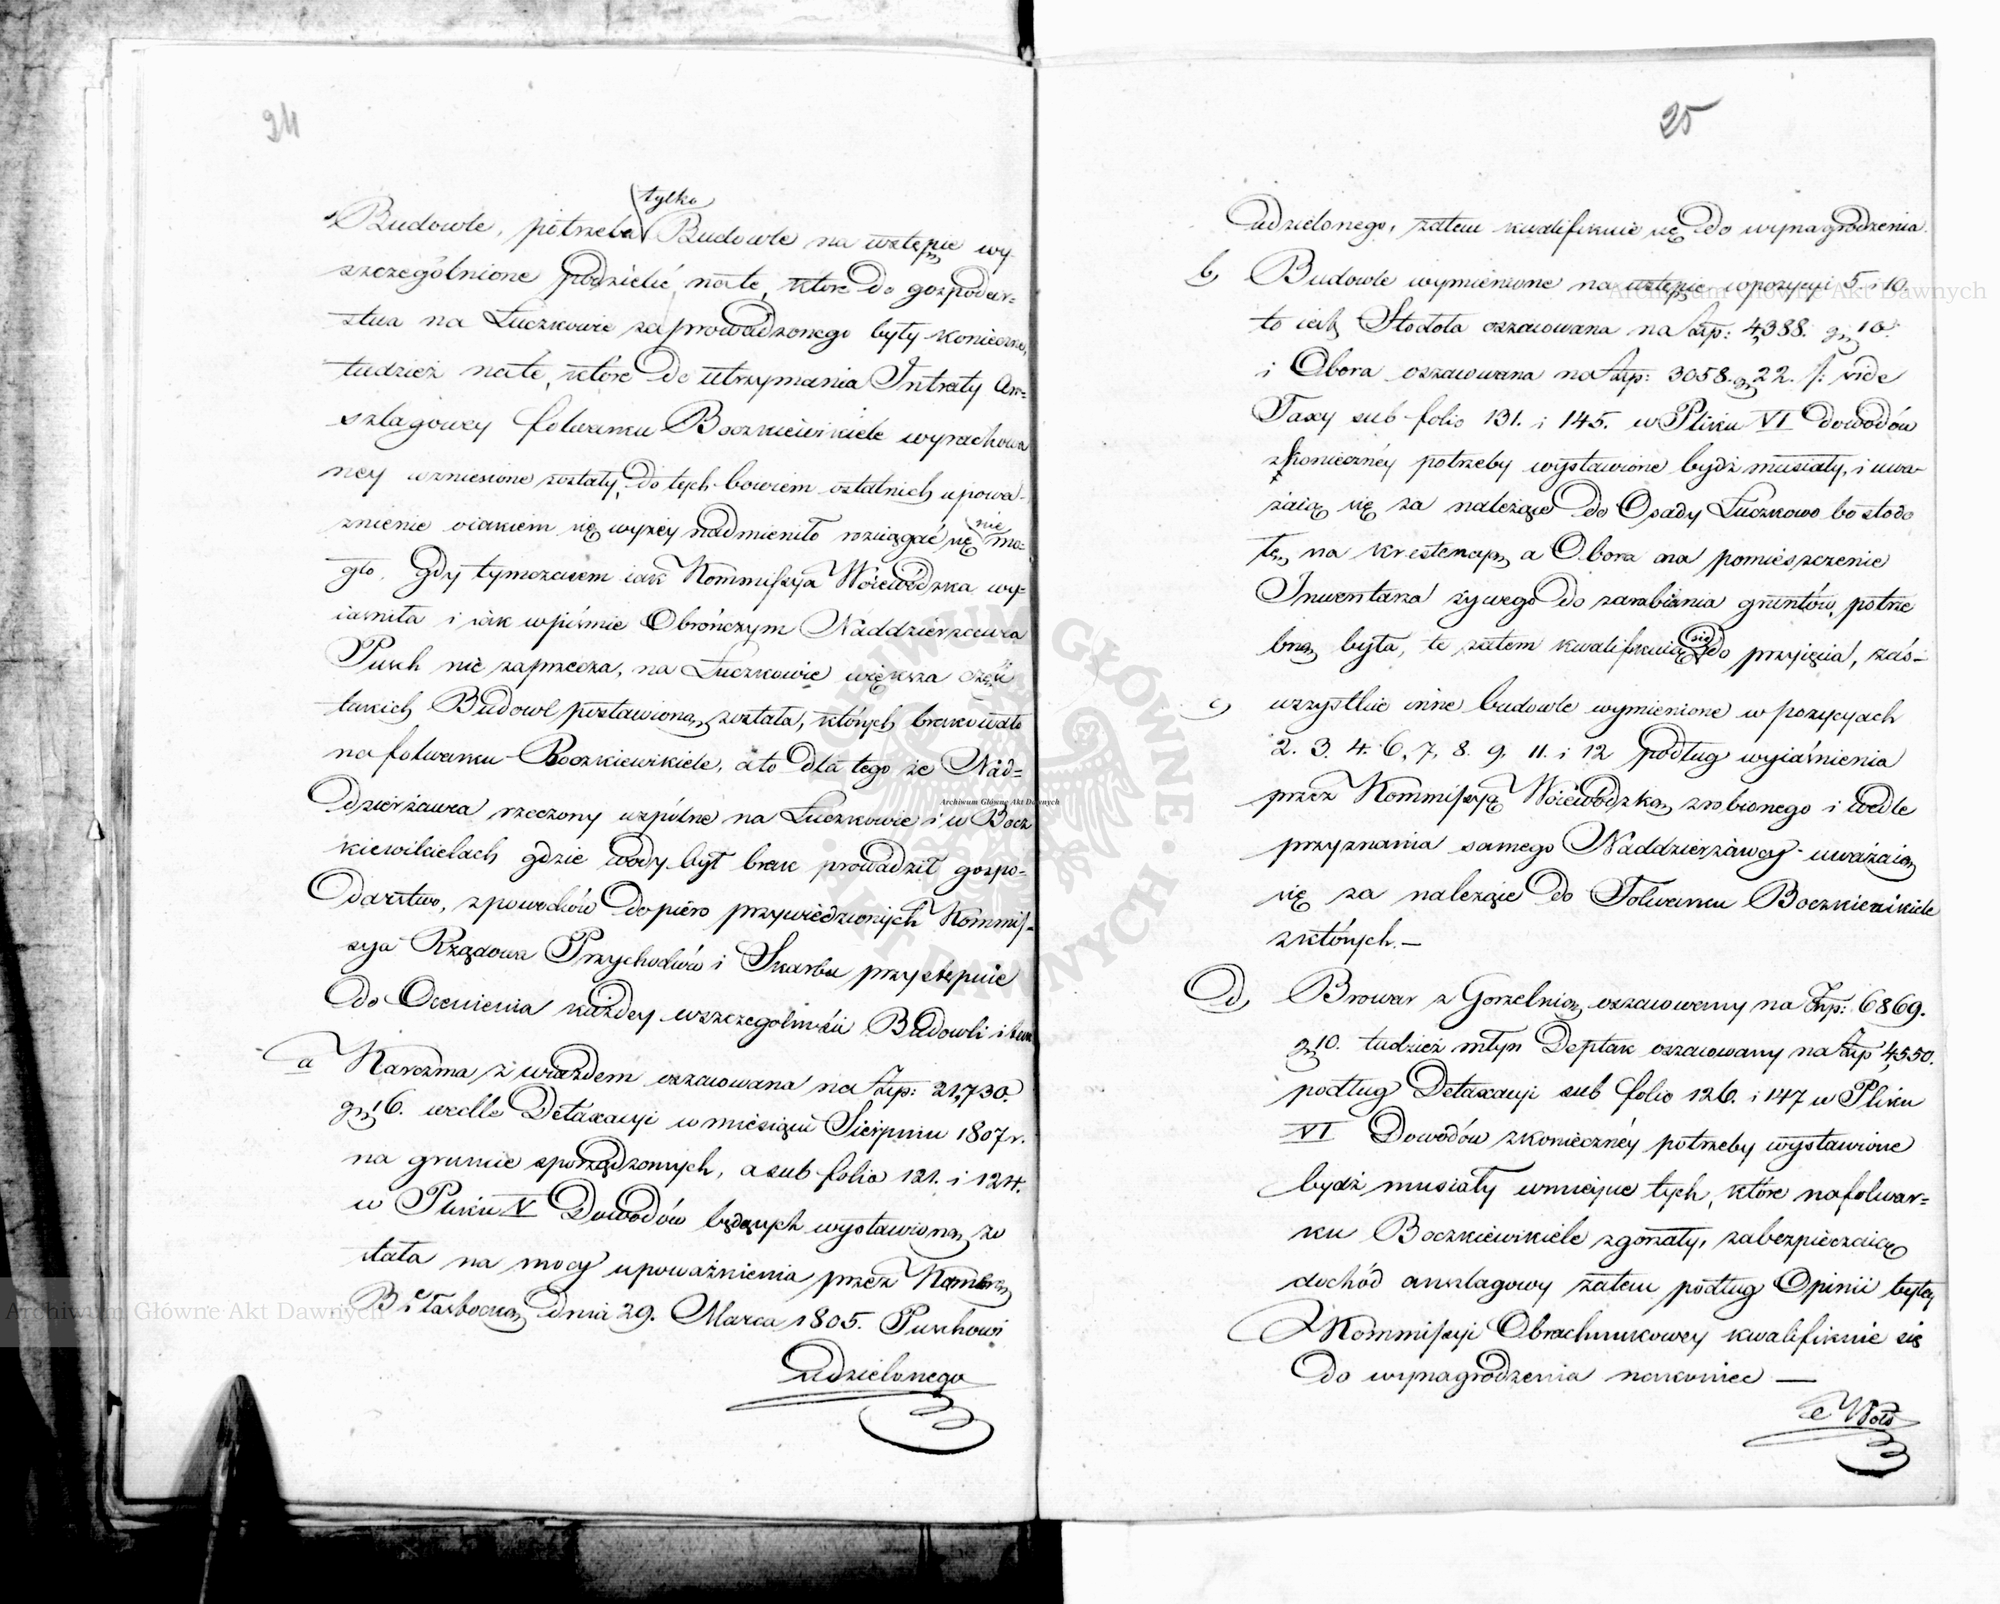 24
tylko
Budowle, potrzeba Budowle na wstępie wy
szczególnione podzielić na te, które do gospodar=
stwa na Łuczkowie zaprowadzonego były konieczne,
tudzież na te, które do utrzymania Intraty An=
szlagowey folwarku Boczkiewikiele wyrachowa
ney wzniesione zostały, do tych bowiem ostatnich upowa-
żnienie o iakiem się wyżey nadmieniło rozciągać się nie mo=
gło. Gdy tymczasem iak Kommissya Wojewódzka wy=
iaśniła i iak w piśmie Obrończym Naddzierzawca
Pusch nie zaprzecza, na Łuczkowie większa część
takich Budowl postawioną została, których brakowało
na folwarku Boczkiewikiele, a to dla tego że Nad=
dzierżawca rzeczony wspólne na Łuczkowie i w Bocz
kiewikielach gdzie wody był brak prowadził gospo=
darstwo, z powodów dopiero przywiedzionych Kommis=
sya Rządowa Przychodów i Skarbu przystępuie
do Ocenienia każdey w szczególności Budowli i tak
a Karczma z wiazdem oszacowana na Złp: 21,730.
gr 16. wedle Detaxacyi w miesiącu Sierpniu 1807 r.
na gruncie sporządzonych, a sub folio 121. i 124.
w Pliku V Dowodów będących wystawioną zo
stała na mocy upoważnienia przez Kamerę
Białostocką dnia 29. Marca 1805. Puschowi
udzielonego
25
udzielonego, zatem kwalifikuie się do wynagrodzenia.
b, Budowle wymienione na wstępie w pozycyi 5. i 10.
to iest Stodoła oszacowana na Złp: 4,388. gr 10.
i Obora oszacowana na Złp: 3058. gr 22. /: vide
Taxy sub folio 131. i 145. w Pliku VI Dowodów
z konieczney potrzeby wystawione bydź musiały, i uwa-
żaią się za należące do Osady Łuczkowo bo stodo
łę, na krestencyą a Obora na pomieszczenie
Inwentarza żywego do zarabiania gruntów, potrze
bną była, te zatem kwalifikuią się do przyięcia, zaś-
c, wszystkie inne budowle wymienione w pozycyach
2. 3. 4. 6, 7, 8. 9. 11. i 12 podług wyiaśnienia
przez Kommissyą Wojewódzką zrobionego i wedle
przyznania samego Naddzierżawcy uważaią
się za należące do Folwarku Boczkiewikiele
z których.—
d, Browar z Gorzelnią oszacowany na Złp: 6869.
gr 10. tudzież młyn Deptak oszacowany na Złp 4,550.
podług Detaxacyi sub folio 126. i 147 w Pliku
VI Dowodów z konieczney potrzeby wystawione
bydź musiały w mieysce tych, które na folwar=
ku Boczkiewikiele zgorzały, zabezpieczaiąc
dochód anszlagowy zatem podług Opinii byłey
Kommissyi Obrachunkowey kwalifikuie się
do wynagrodzenia nakoniec —